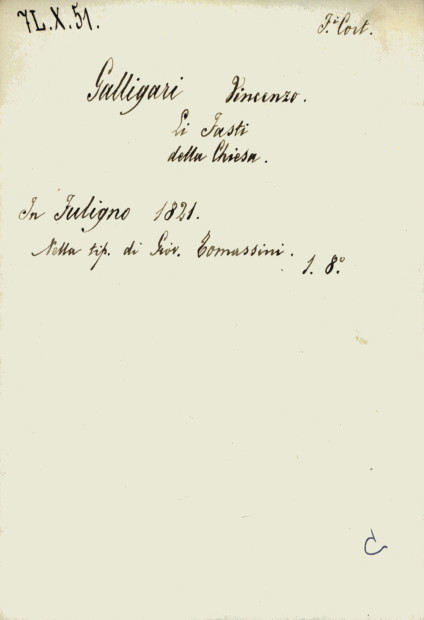 7L.X.51.
F.i Cort.
Galligari Vincenzo.
Li Fasti
della Chiesa.
In Fuligno 1821.
Nella tip. di Giov. Tomassini.
1. 8.º
C